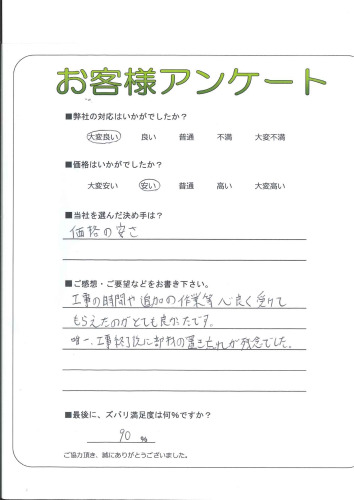 お客様アンケート
■弊社の対応はいかがでしたか？
大変良い 良い 普通 不満 大変不満
■価格はいかがでしたか？
大変安い 安い 普通 高い 大変高い
■当社を選んだ決め手は？
価格の安さ
■ご感想・ご要望などをお書き下さい。
工事の時間や追加の作業等心良く受けて
もらえたのがとても良かったです。
唯一、工事終了後に部材の置き忘れが残念でした。
■最後に、ズバリ満足度は何%ですか？
90 %
ご協力頂き、誠にありがとうございました。